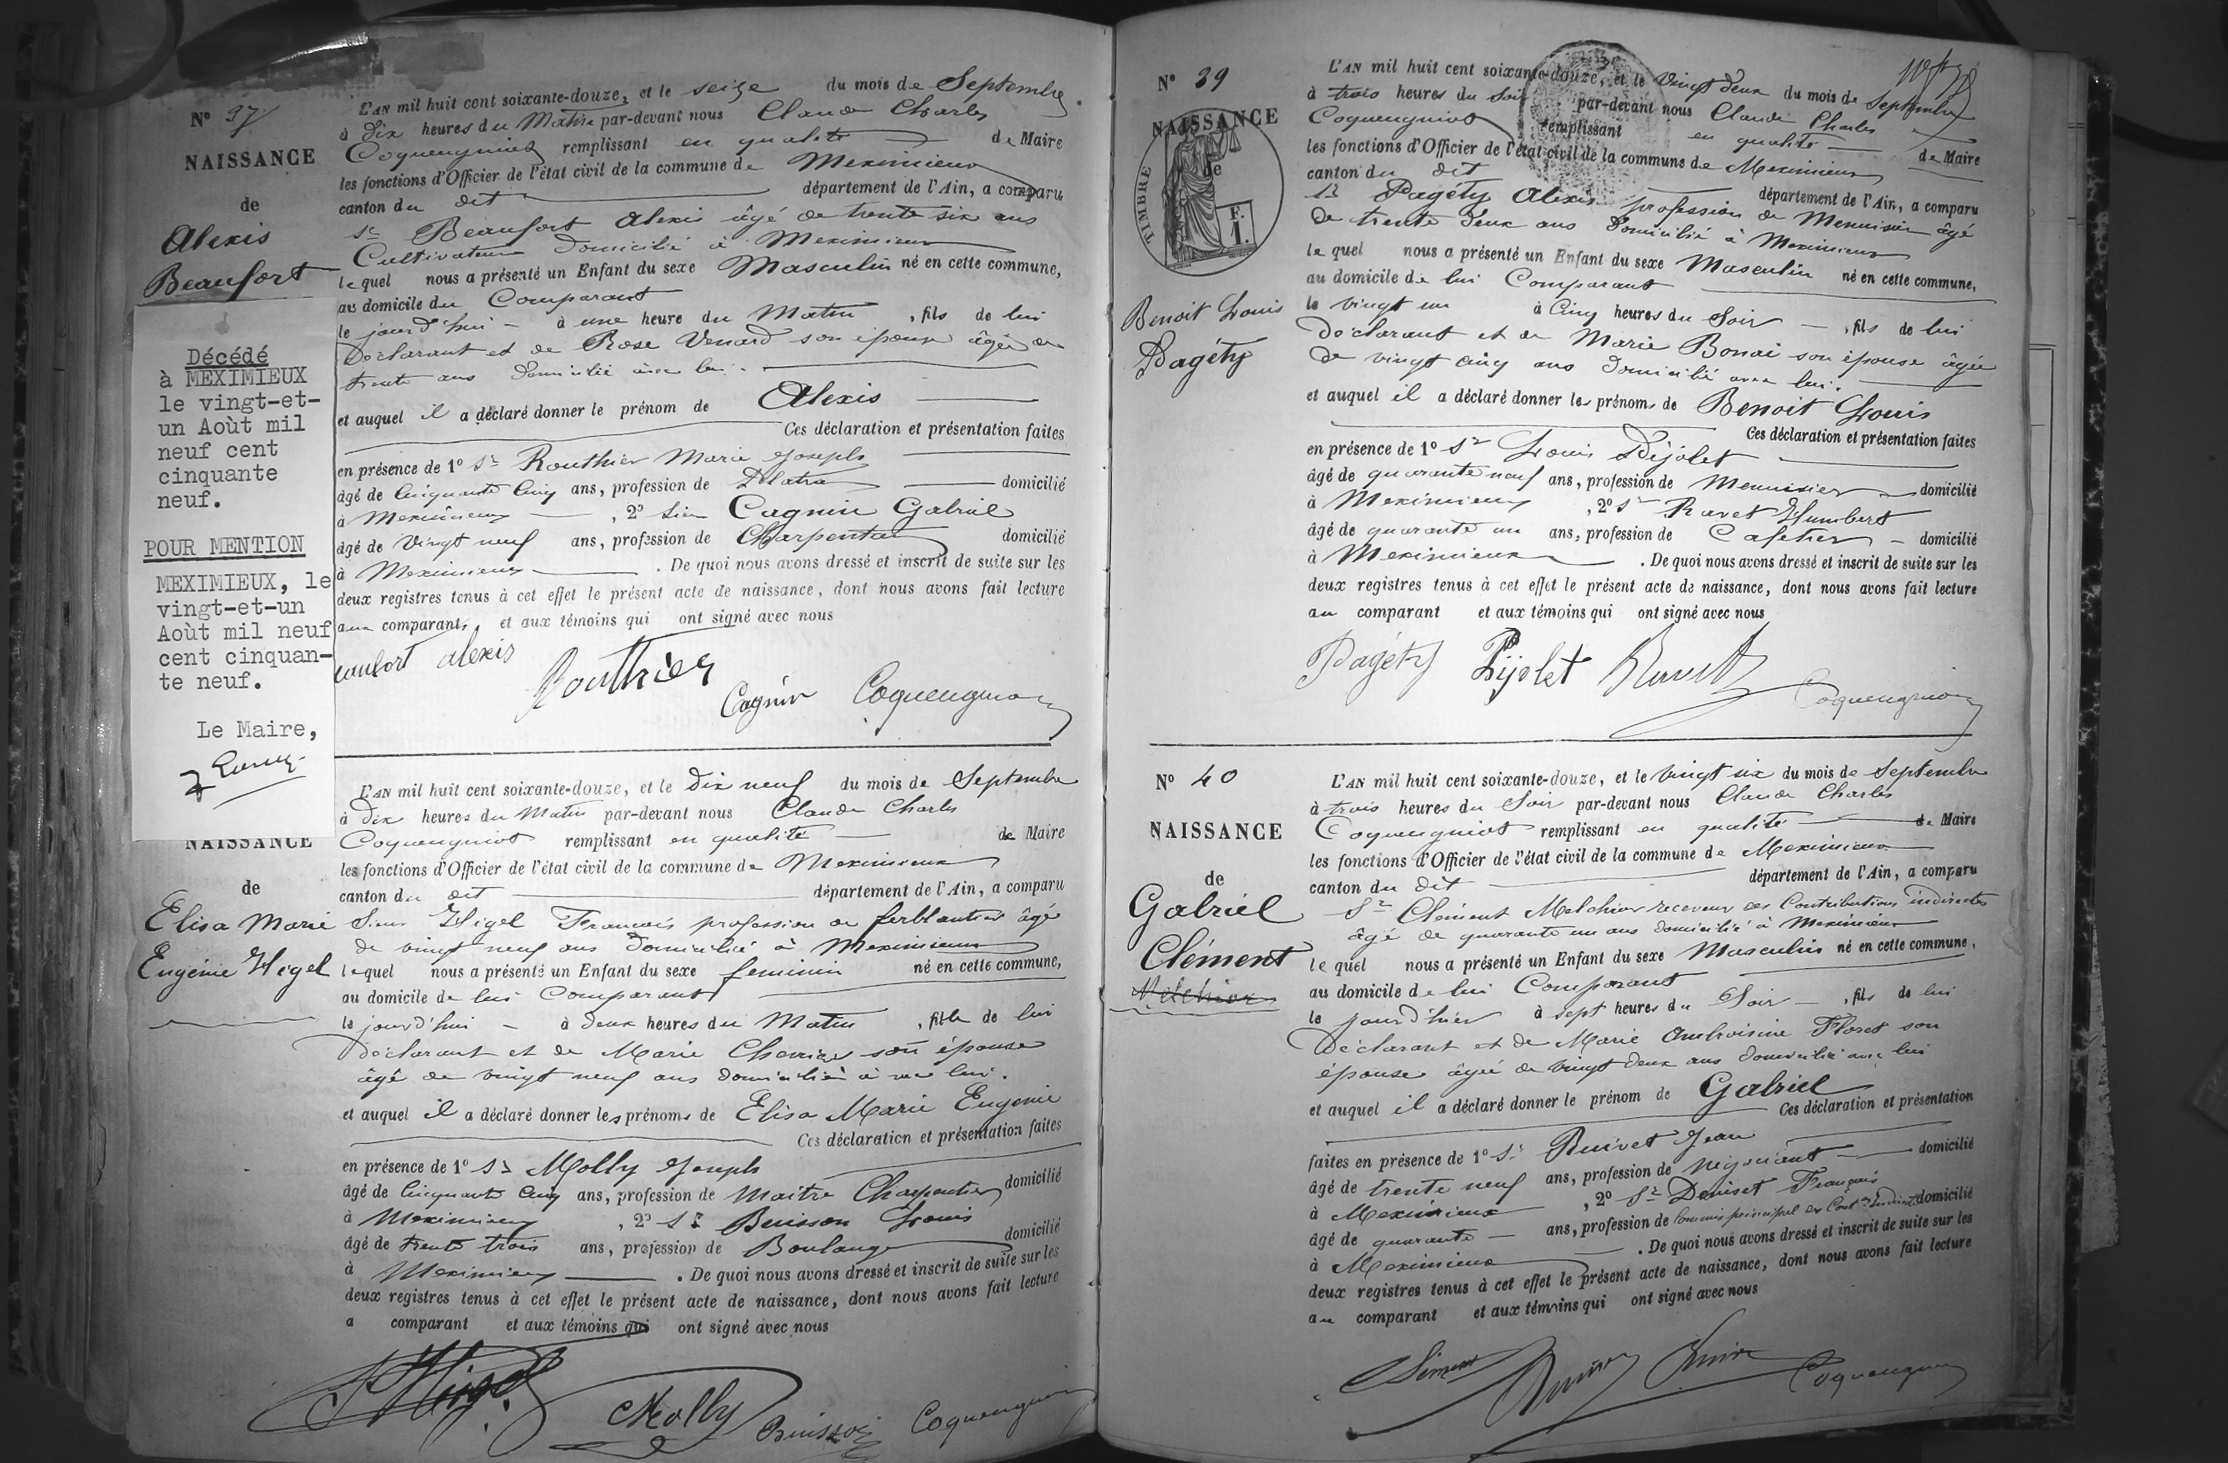 Nº 37
NAISSANCE
de
Alexis
Beaufort
Décédé
à MEXIMIEUX
le vingt-et-
un Août mil
neuf cent
cinquante
neuf.
POUR MENTION
MEXIMIEUX, le
vingt-et-un
Août mil neuf
cent cinquan-
te neuf.
Le Maire,
L'AN mil huit cent soixante-douze, et le seize du mois de Septembre
à Dix heures du Matin par-devant nous Claude Charles
Coquengniot remplissant en qualité de Maire
les fonctions d'Officier de l'état civil de la commune de Meximieux
canton du dit département de l'Ain, a comparu
Sr Beaufort Alexis âgé de trente six ans
Cultivateur Domicilié à Meximieux
lequel nous a présenté un Enfant du sexe Masculin né en cette commune,
au domicile du Comparant
le jourd'hui à une heure du Matin, fils de lui
Déclarant et de Rose Venard son épouse âgée de
trente ans Domicilié avec lui.
et auquel il a déclaré donner le prénom de Alexis
Ces déclaration et présentation faites
en présence de 1º Sr Routhier Marie Joseph
âgé de Cinquante Cinq ans, profession de domicilié
à Meximieux, 2º Sieur Cagnin Gabriel
âgé de Vingt neuf ans, profession de Charpentier domicilié
à Meximieux. De quoi nous avons dressé et inscrit de suite sur les
deux registres tenus à cet effet le présent acte de naissance, dont nous avons fait lecture
aux comparants, et aux témoins qui ont signé avec nous
alexis Routhier
Cagnin Coquengniot
NAISSANCE
de
Elisa Marie
Eugénie Higel
L'AN mil huit cent soixante-douze, et le Dix neuf du mois de Septembre
à Dix heures du Matin par-devant nous Claude Charles
Coquengniot remplissant en qualité de Maire
les fonctions d'Officier de l'état civil de la commune de Meximieux
canton du dit département de l'Ain, a comparu
Sieur Higel Francois profession de ferblantier âgé
de vingt neuf ans Domicilié à Meximieux
lequel nous a présenté un Enfant du sexe feminin né en cette commune,
au domicile de lui Comparant
le jourd'hui à deux heures du Matin, fille de lui
déclarant et de Marie son épouse
âgé de vingt neuf ans domicilié avec lui.
et auquel il a déclaré donner les prénoms de Elisa Marie Eugenie
Ces déclaration et présentation faites
en présence de 1º Sr Molly Joseph
âgé de Cinquante Cinq ans, profession de Maitre Charpentier domicilié
à Meximieux, 2º Sr Buisson Louis
âgé de trente trois ans, profession de Boulanger domicilié
à Meximieux. De quoi nous avons dressé et inscrit de suite sur les
deux registres tenus à cet effet le présent acte de naissance, dont nous avons fait lecture
a comparant et aux témoins qui ont signé avec nous
Higel Molly Buisson Coquengniot
Nº 39
NAISSANCE
de
TIMBRE
F.
1.
Benoit Louis
Pagéty
L'AN mil huit cent soixante-douze, et le vingt deux du mois de Septembre
à trois heures du Soir par-devant nous Claude Charles
Coquengniot remplissant en qualité de Maire
les fonctions d'Officier de l'état civil de la commune de Meximieux
canton du dit département de l'Ain, a comparu
Sr Pagéty Alexis profession de Menuisier âgé
de trente deux ans Domicilié à Meximieux
lequel nous a présenté un Enfant du sexe Masculin né en cette commune,
au domicile de lui Comparant
le vingt un à Cinq heures du Soir, fils de lui
Déclarant et de Marie Bonai son épouse âgée
de vingt cinq ans domicilié avec lui.
et auquel il a déclaré donner les prénoms de Benoit Louis
Ces déclaration et présentation faites
en présence de 1º Sr Louis Pijolet
âgé de quarante neuf ans, profession de Menuisier domicilié
à Meximieux, 2º Sr Ravet Humbert
âgé de quarante un ans, profession de Cafetier domicilié
à Meximieux. De quoi nous avons dressé et inscrit de suite sur les
deux registres tenus à cet effet le présent acte de naissance, dont nous avons fait lecture
au comparant et aux témoins qui ont signé avec nous
Pagéty Pijolet Ravet Coquengniot
Nº 40
NAISSANCE
de
Gabriel
Clément
Melchior
L'AN mil huit cent soixante-douze, et le vingt six du mois de Septembre
à trois heures du Soir par-devant nous Claude Charles
Coquengniot remplissant en qualité de Maire
les fonctions d'Officier de l'état civil de la commune de Meximieux
canton du dit département de l'Ain, a comparu
Sr Clément Melchior receveur des Contributions indirectes
âgé de quarante un ans domicilié à Meximieux
lequel nous a présenté un Enfant du sexe Masculin né en cette commune,
au domicile de lui Comparant
le jour d'hier à sept heures du Soir, fils de lui
Déclarant et de Marie Ambroisine Floret son
épouse âgée de vingt deux ans domicilié avec lui
et auquel il a déclaré donner le prénom de Gabriel
Ces déclaration et présentation
faites en présence de 1º Sr Buivet Jean
âgé de trente neuf ans, profession de Négociant domicilié
à Meximieux, 2º Sr Deniset Francois
âgé de quarante ans, profession de Commis principal des Cont. indirectes domicilié
à Meximieux. De quoi nous avons dressé et inscrit de suite sur les
deux registres tenus à cet effet le présent acte de naissance, dont nous avons fait lecture
au comparant et aux témoins qui ont signé avec nous
Coquengniot